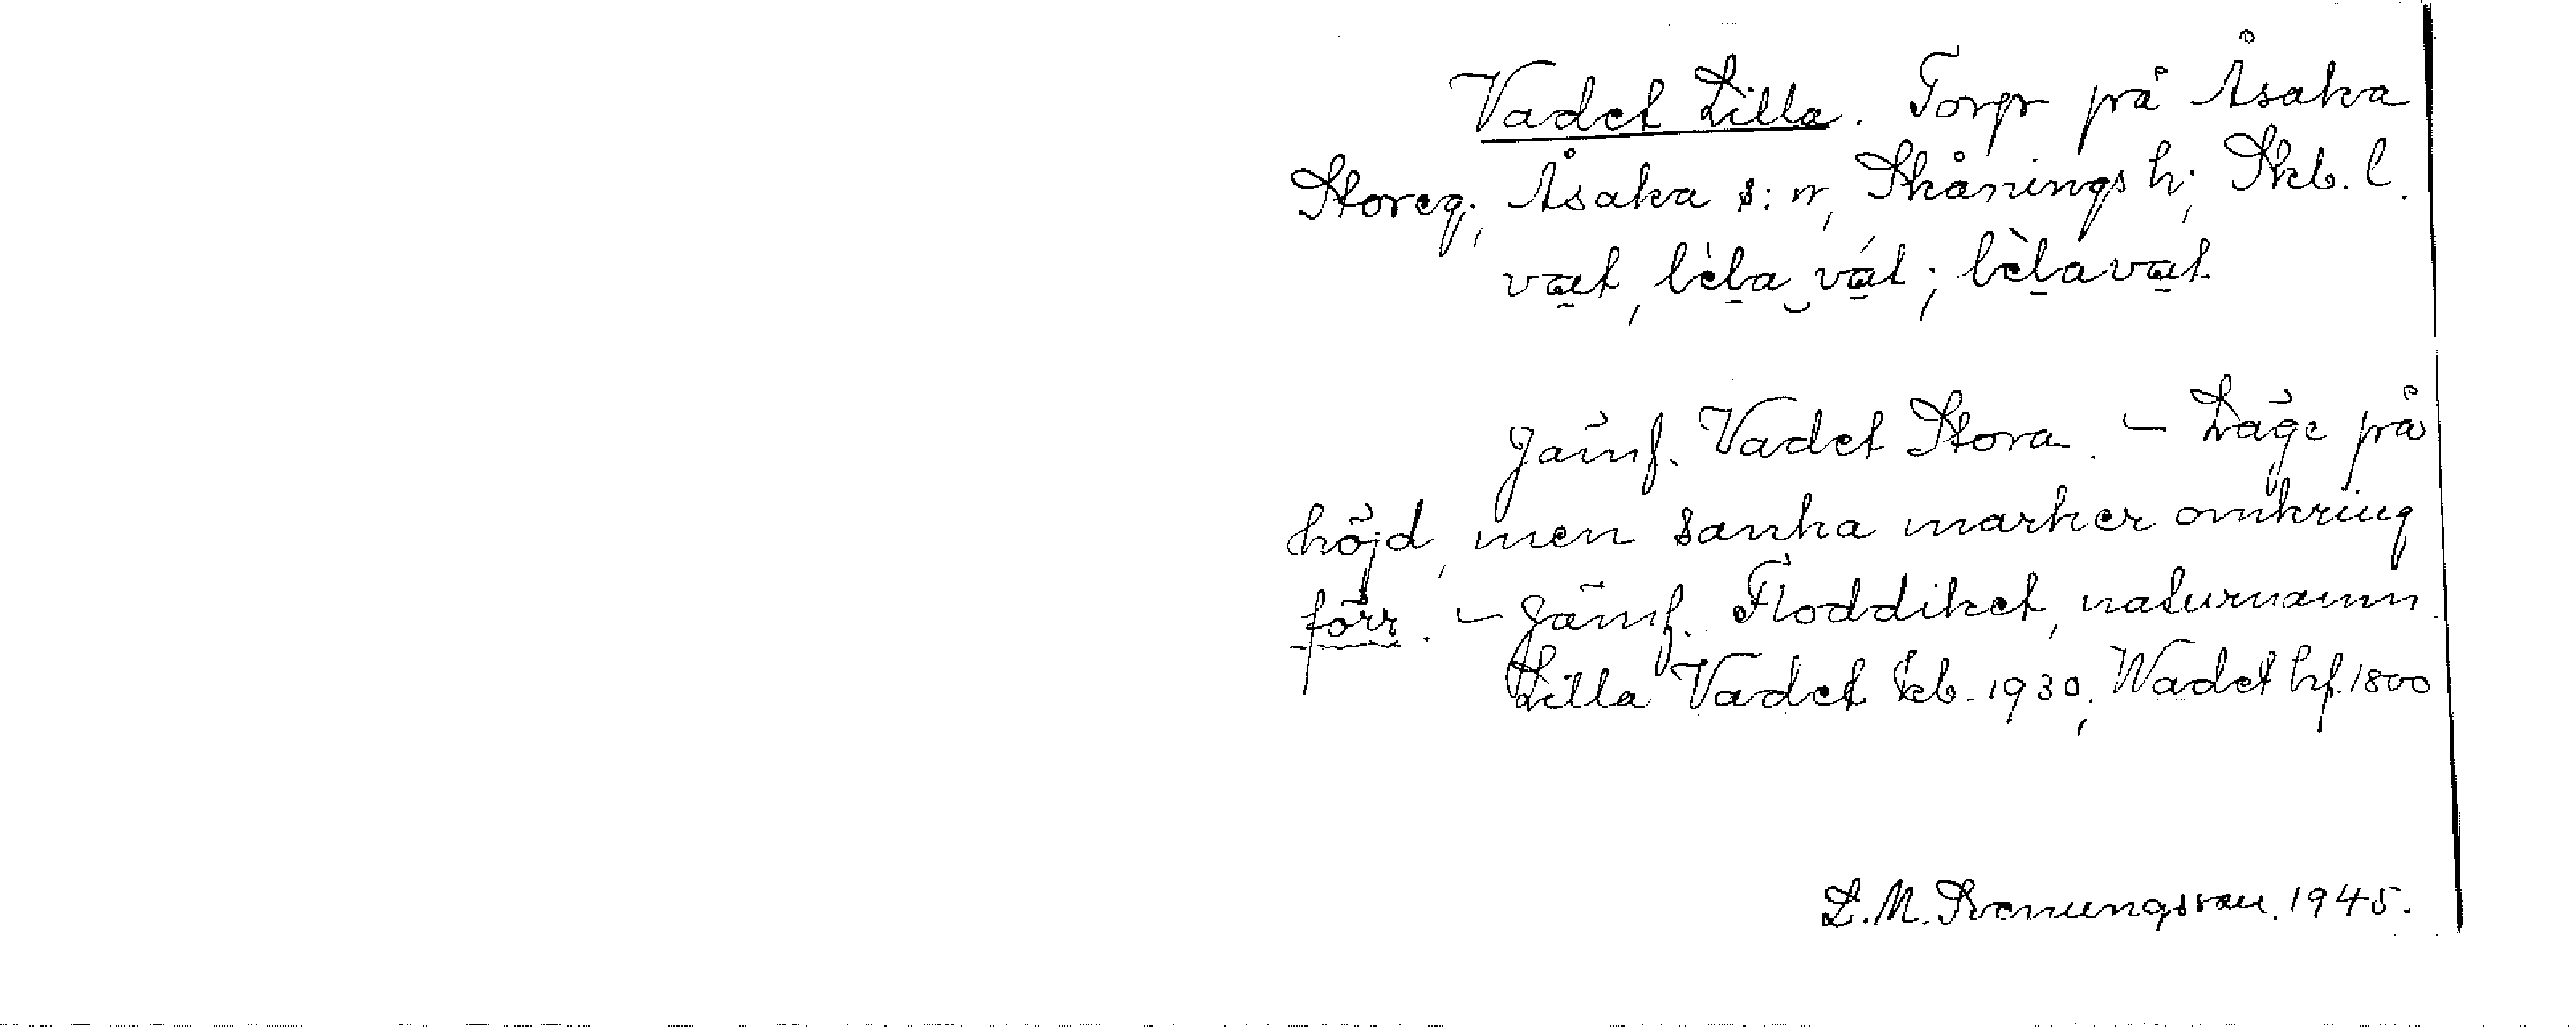 Vadet Lilla. Torp på Åsaka
Storeg., Åsaka s:n, Skånings h., Skb. l.
vat, lèla vát; lèlavat
Jämf. Vadet Stora. – Läge på
höjd, men sanka marker omkring
förr. – Jämf. Floddiket, naturnamn.
Lilla Vadet kb. 1930, Wadet hf. 1800
L. M. Svenungsson. 1945.